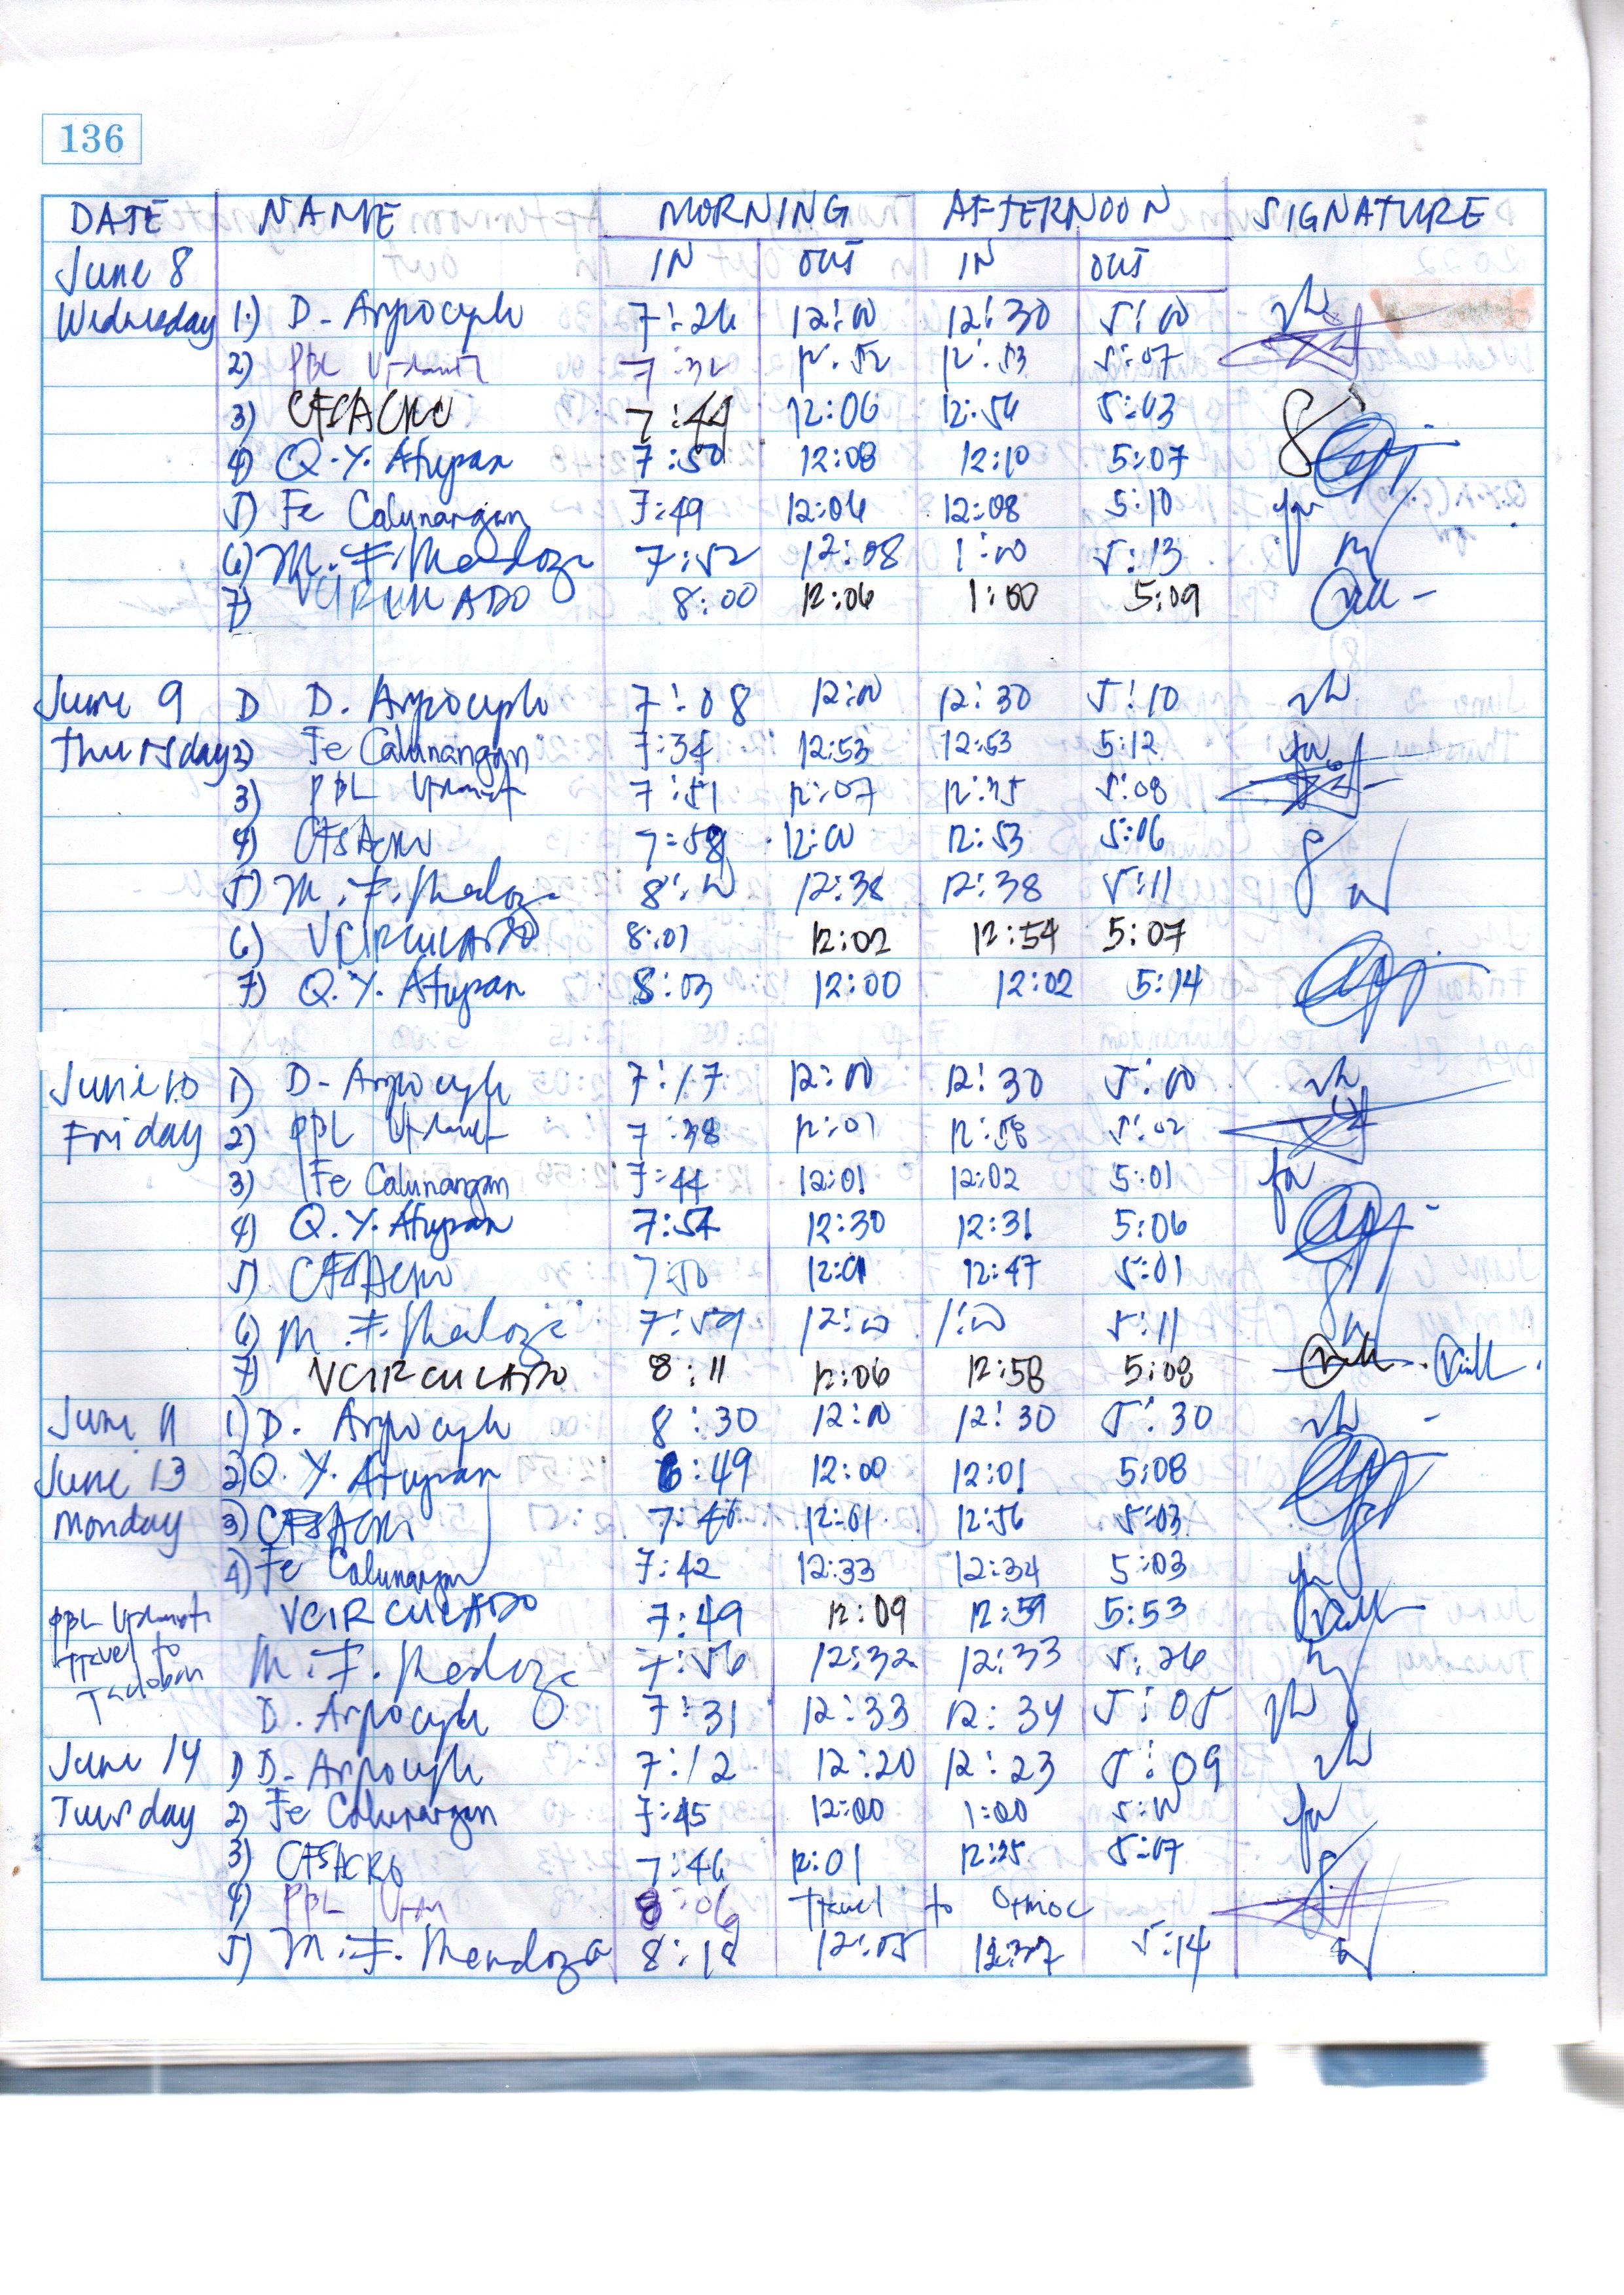 136
DATE NAME MORNING AFTERNOON SIGNATURE
June 8 IN OUT IN OUT
Wednesday 1.) D. 7:26 12:00 12:30 5:00
2) PBL 7:32 12:52 12:53 5:07
3) CFSACRO 7:44 12:06 12:56 5:03
4) Q.Y. Atupan 7:50 12:08 12:10 5:07
5) Fe Calunangan 7:49 12:06 12:08 5:10
6) M. F. Mendoza 7:52 12:08 1:00 5:13
7) VCIRCULADO 8:00 12:06 1:00 5:09
June 9 1) D. 7:08 12:00 12:30 5:10
Thursday 2) Fe Calunangan 7:34 12:53 12:53 5:12
3) PBL 7:51 12:07 12:35 5:08
4) CFSACRO 7:58 12:00 12:53 5:06
5) M. F. Mendoza 8:00 12:38 12:38 5:11
6) VCIRCULADO 8:01 12:02 12:54 5:07
7) Q.Y. Atupan 8:03 12:00 12:02 5:14
June 10 1) D. 7:17 12:00 12:30 5:00
Friday 2) PBL 7:38 12:01 12:58 5:02
3) Fe Calunangan 7:44 12:01 12:02 5:01
4) Q.Y. Atupan 7:54 12:30 12:31 5:06
5) CFSACRO 7:50 12:01 12:47 5:01
6) M. F. Mendoza 7:59 12:00 1:00 5:11
7) VCIRCULADO 8:11 12:06 12:58 5:08
June 11 1) D. 8:30 12:00 12:30 5:30
June 13 2) Q.Y. Atupan 6:49 12:00 12:01 5:08
Monday 3) CFSACRO 7:40 12:01 12:56 5:03
4) Fe Calunangan 7:42 12:33 12:34 5:03
PBL VCIRCULADO 7:49 12:09 12:59 5:53
Travel to M. F. Mendoza 7:56 12:32 12:33 5:26
Tacloban D. 7:31 12:33 12:34 5:05
June 14 1) D. 7:12 12:20 12:23 5:09
Tuesday 2) Fe Calunangan 7:45 12:00 1:00 5:00
3) CFSACRO 7:46 12:01 12:35 5:07
4) PBL 8:06 Travel to Ormoc
5) M. F. Mendoza 8:18 12:05 12:37 5:14